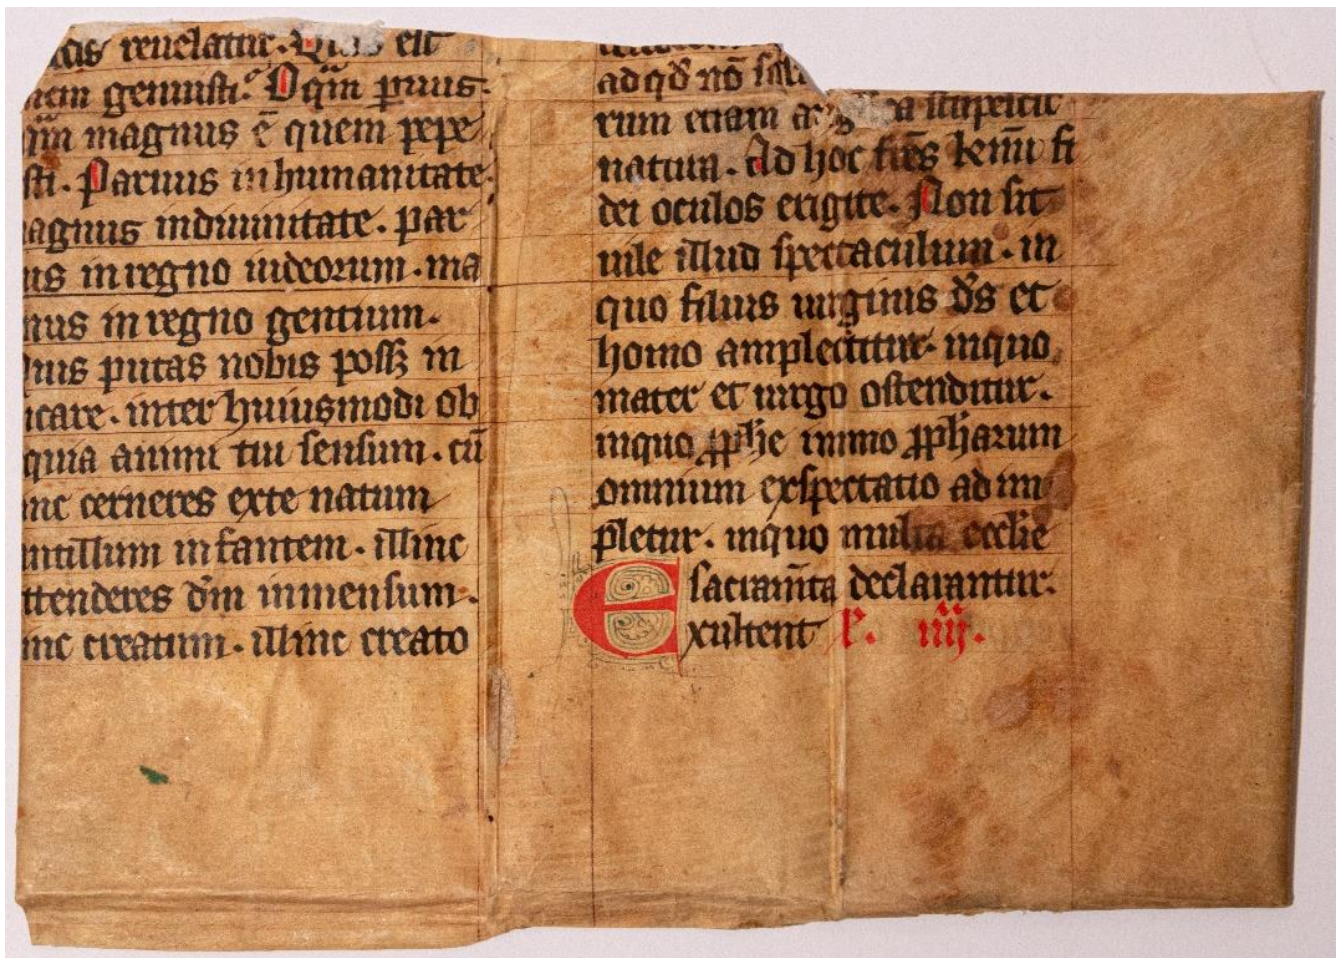 reuelatur. Quis est
genuisti. O q̄m paruus.
q̄m magnus ē quem pepe
sti. Paruus in humanitate.
agnus in diuinitate. par
us in regno iudeorum. ma
nus in regno gentium.
uis putas nobis poss㝫 in
icare. inter huiusmodi ob
quia animi tui sensum. cū
inc cerneres ex te natum
antillum infantem. illinc
ttenderes dm̄ inmensum.
inc creatum. illinc creato
ad qd̄ nō
rum etiam stupescit
natura. Ad hoc frēs kmī fi
dei oculos erigite. Non sit
uile illud spectaculum. in
quo filius uirginis ds̄ et
homo amplectitur. inquo
mater et uirgo ostenditur.
inquo ꝓph̄e immo ꝓph̄arum
omnium exspectatio adim
pletur. inquo multa eccl̄ie
sacram̄ta declarantur.
Exultent L. iiij.